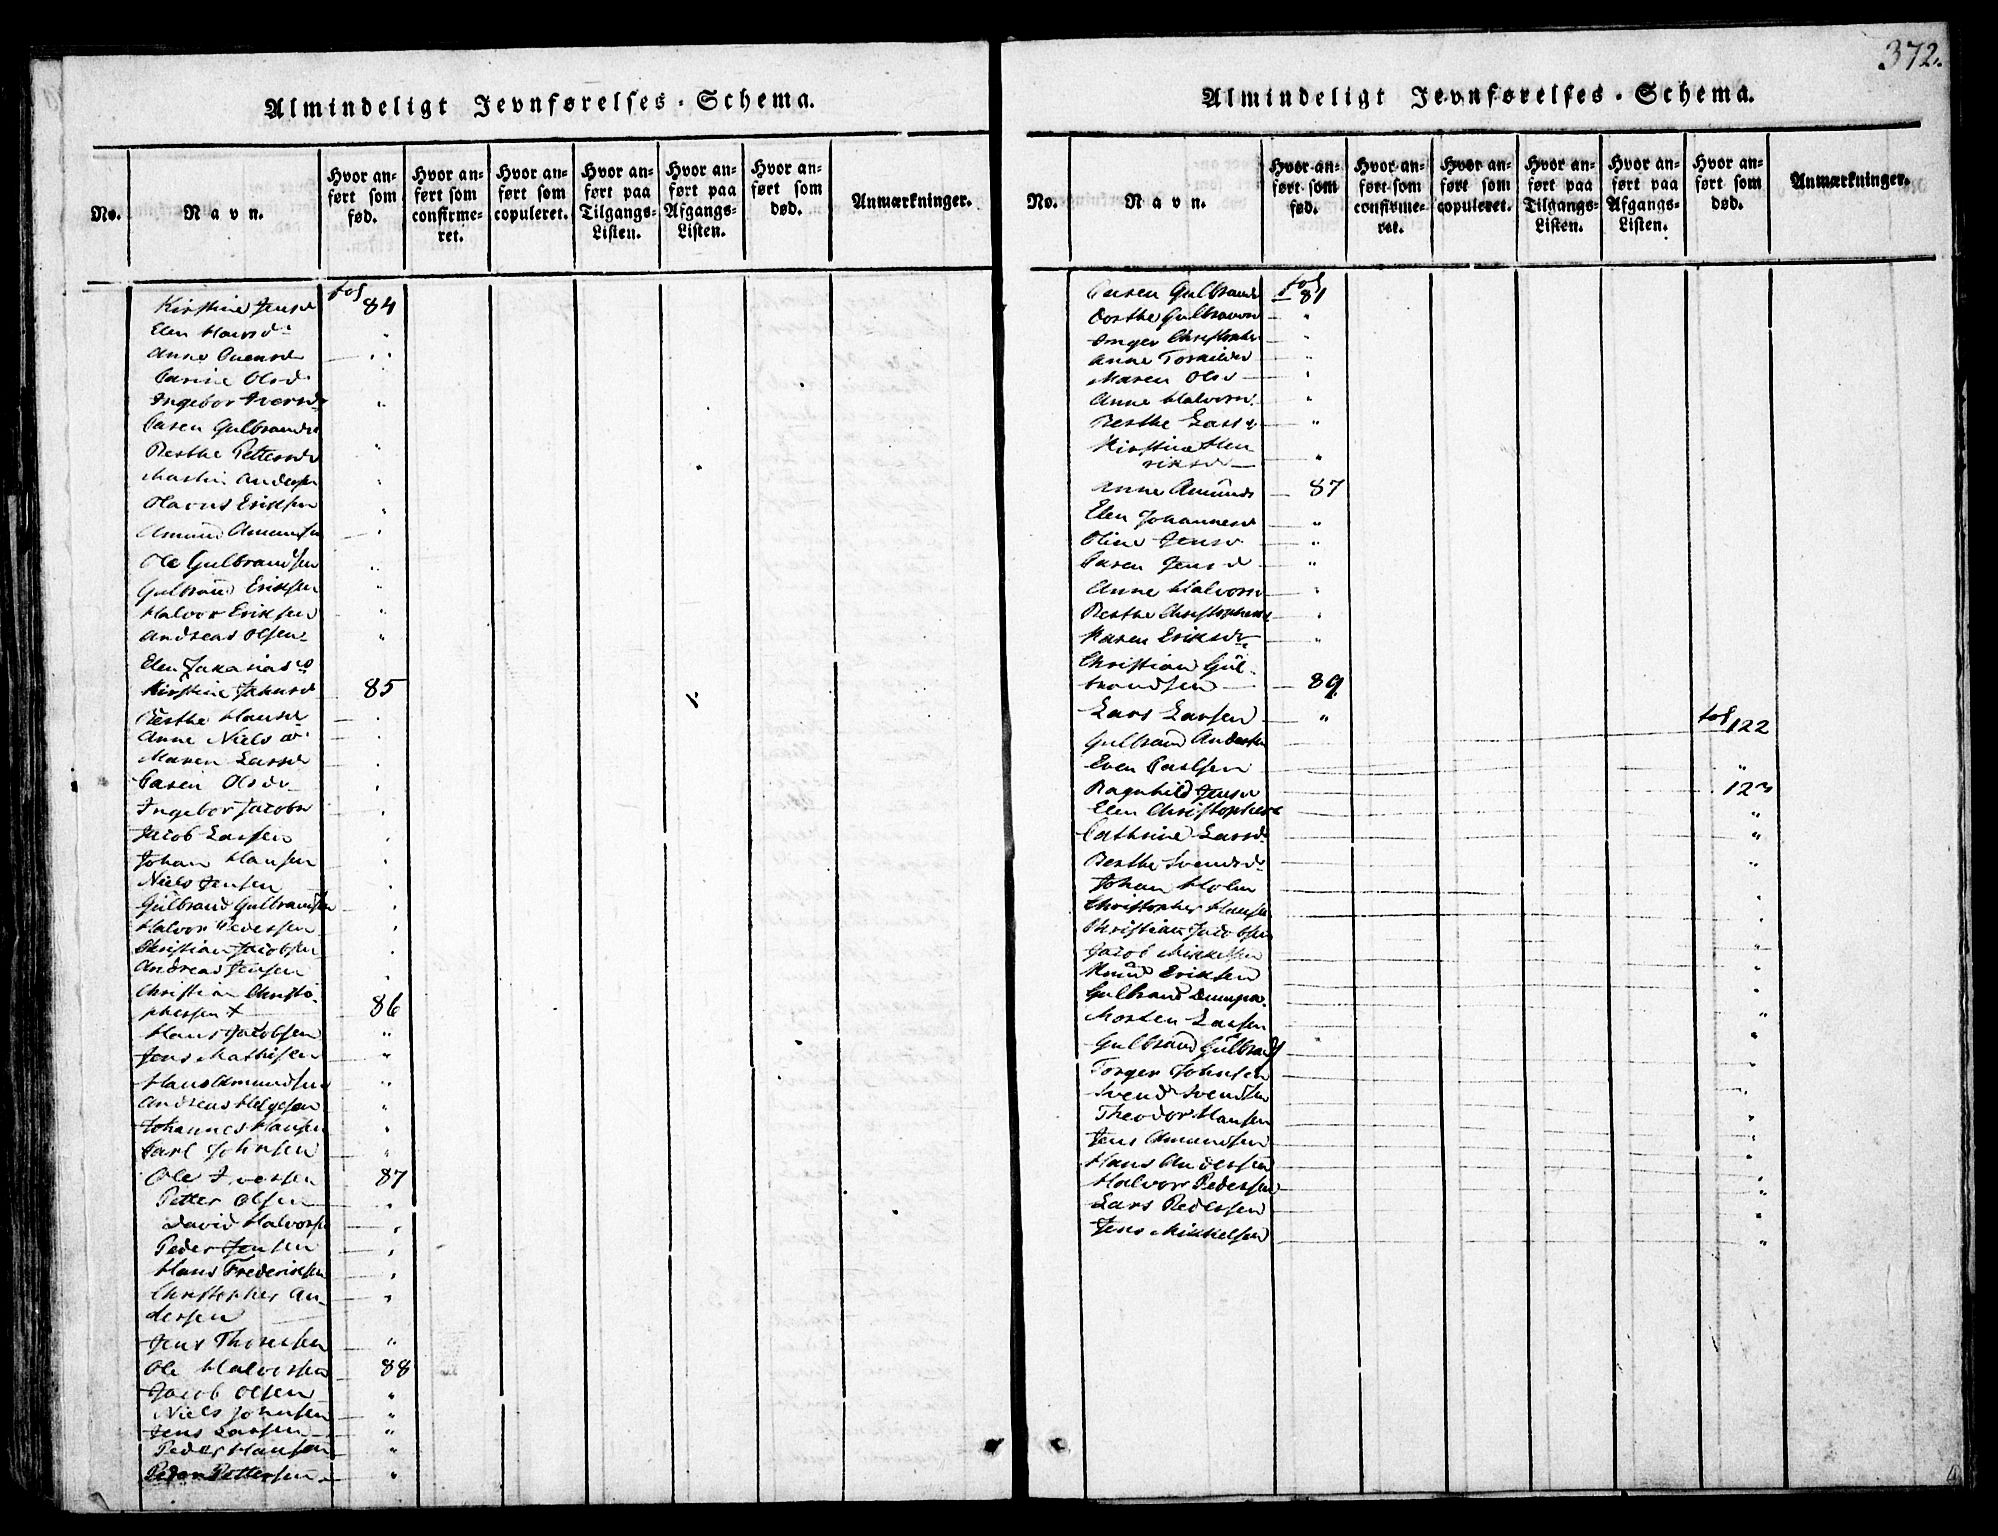 Almindeligt Jevnførelses-Schema.
No.
Navn.
Hvor an-
ført som
fød.
Hvor an-
ført som
confirme-
ret.
Hvor an-
ført som
copuleret.
Hvor an-
ført paa
Tilgangs-
Listen.
Hvor an-
ført paa
Afgangs-
Listen.
Hvor an-
ført som
død.
Anmærkninger.
Kirstine Jensd fol 84
Elen Hansd "
Anne "
Olsd "
Ingebor Iversd "
Caren Gulbrandsd
Berthe Pettersd "
Martin Andersen "
Eriksen "
Amund Amundsen "
Ole Gulbrandsen "
Gulbrand Eriksen "
Halvor Eriksen "
Andreas Olsen "
Elen
Kirstine 85
Berthe Hansd "
Anne Nielsd "
Maren Larsd "
Caren Olsd "
Ingebor Jacobsd "
Jacob Larsen "
Johan Hansen "
Niels Jensen "
Gulbrand Gulbrandsen "
Halvor Pedersen "
Christian Jacobsen "
Andreas Jensen "
Christian Christo-
phersen + 86
Hans Jacobsen "
Jens Mathisen "
Hans Amundsen "
Andreas Helgesen "
Johannes Hansen "
Carl Johnsen "
Ole Iversen 87
Petter Olsen "
David Halvorsen "
Peder Jensen "
Hans Frederiksen "
Christopher An- "
dersen
Jens Thoresen "
Ole Halvorsen 88
Jacob Olsen "
Niels Johnsen "
Jens Larsen "
Peder Hansen "
Peder Pettersen "
372.
Almindeligt Jevnførelses-Schema.
No.
Navn.
Hvor an-
ført som
fød.
Hvor an-
ført som
confirme-
ret.
Hvor an-
ført som
copuleret.
Hvor an-
ført paa
Tilgangs-
Listen.
Hvor an-
ført paa
Afgangs-
Listen.
Hvor an-
ført som
død.
Anmærkninger.
Caren Gulbrandsd fol 81
Dorthe Gulbrandsd "
Inger Christophersd "
Anne "
Maren Olsd "
Anne Halvorsd "
Berthe Larsd "
Kirstine Hen
riksd "
Anne Amunds 87
Elen Johannesd "
Oline Jensd "
Caren Jensd "
Anne Halvorsd "
Berthe Christophersd "
Karen Eriksd "
Christian Gul-
brandsen 89
Lars Larsen "
Gulbrand Andersen fol 122
Even Carlsen "
Ragnhild Jensd 123
Elen Christophersd "
Cathrine Larsd "
Berthe Svendsd "
Johan Holm "
Christopher Hansen "
Christian Jacobsen "
Jacob Mikkelsen "
Knud Eriksen "
Gulbrand "
Morten Larsen "
Gulbrand Gulbrands "
Torger Johnsen "
Svend Svendsen "
Theodor Hansen "
Jens Amundsen "
Hans Andersen "
Halvor Pedersen "
Lars Pedersen "
Jens Mikkelsen "